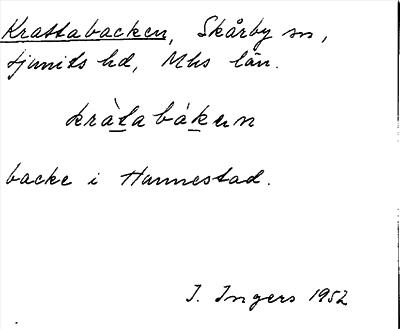 Krattabacken, Skårby sn,
Ljunits hd, Mhs län.
kràt̲abák̲en
backe i Hannestad.
I. Ingers 1952